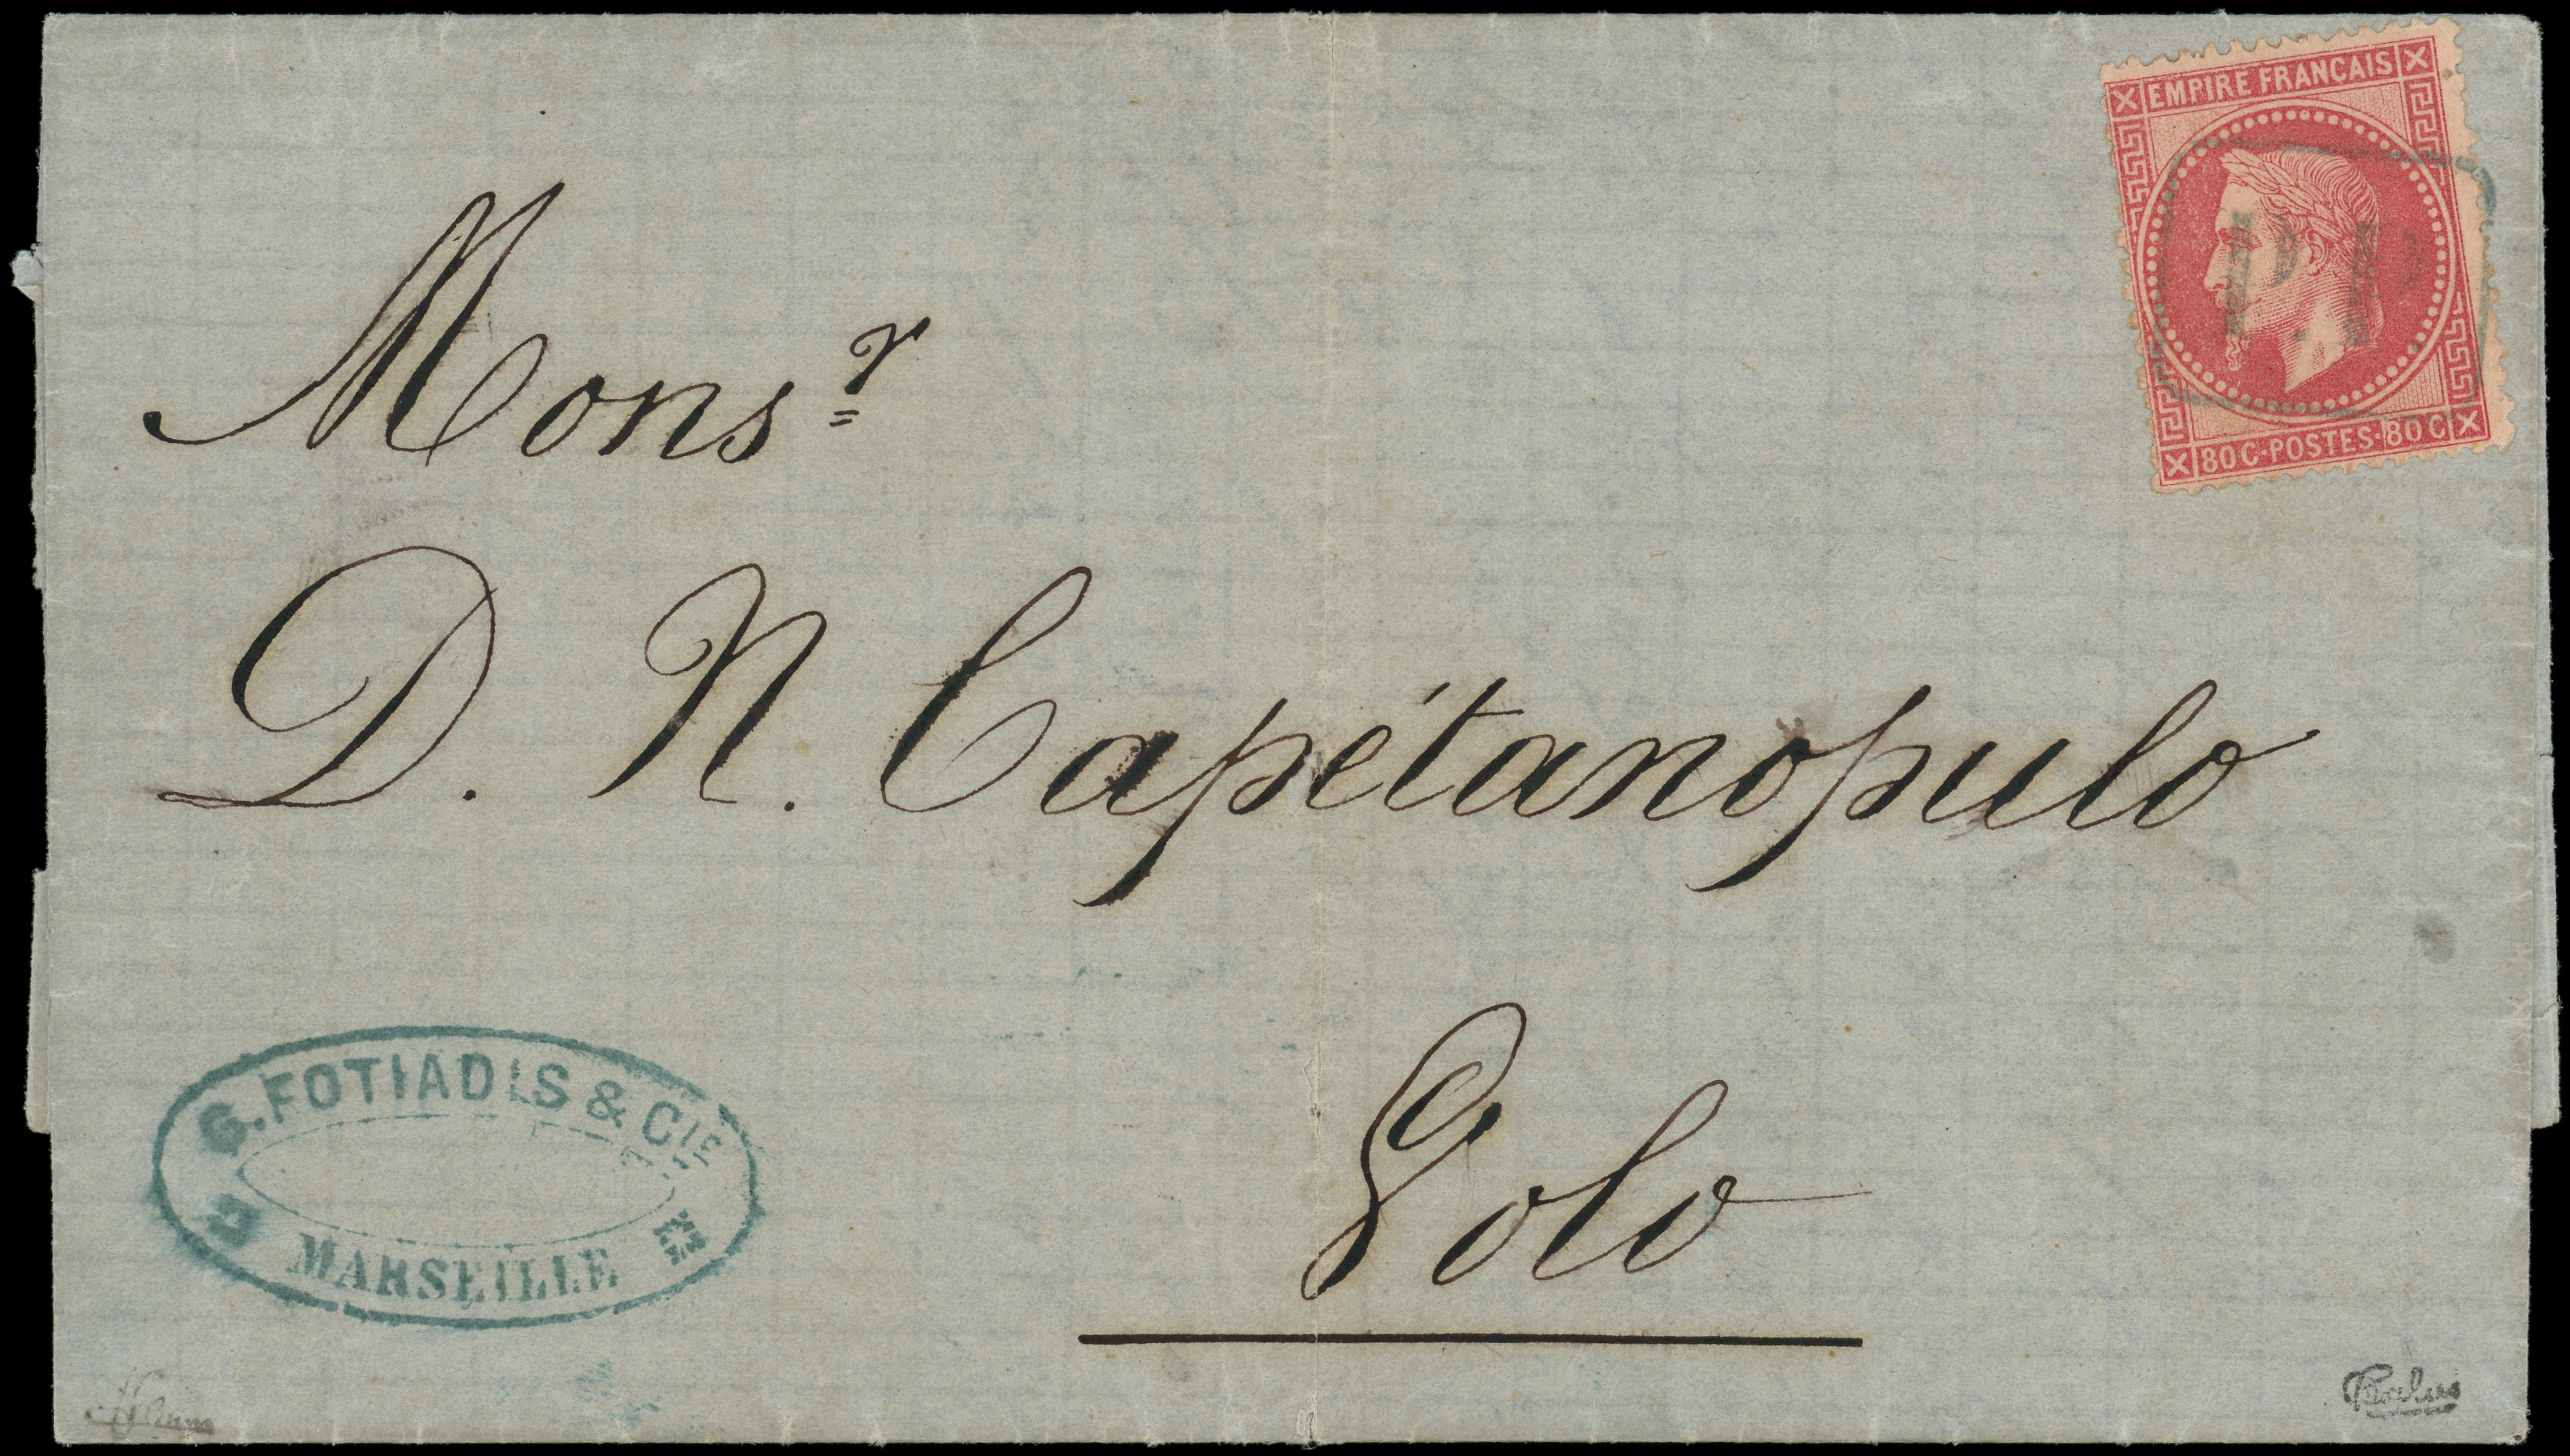 EMPIRE FRANÇAIS
P.P.
80 C·POSTES·80 C
Monsʳ
D. N. Capétanopulo
Volo
G. FOTIADIS & CIE
MARSEILLE